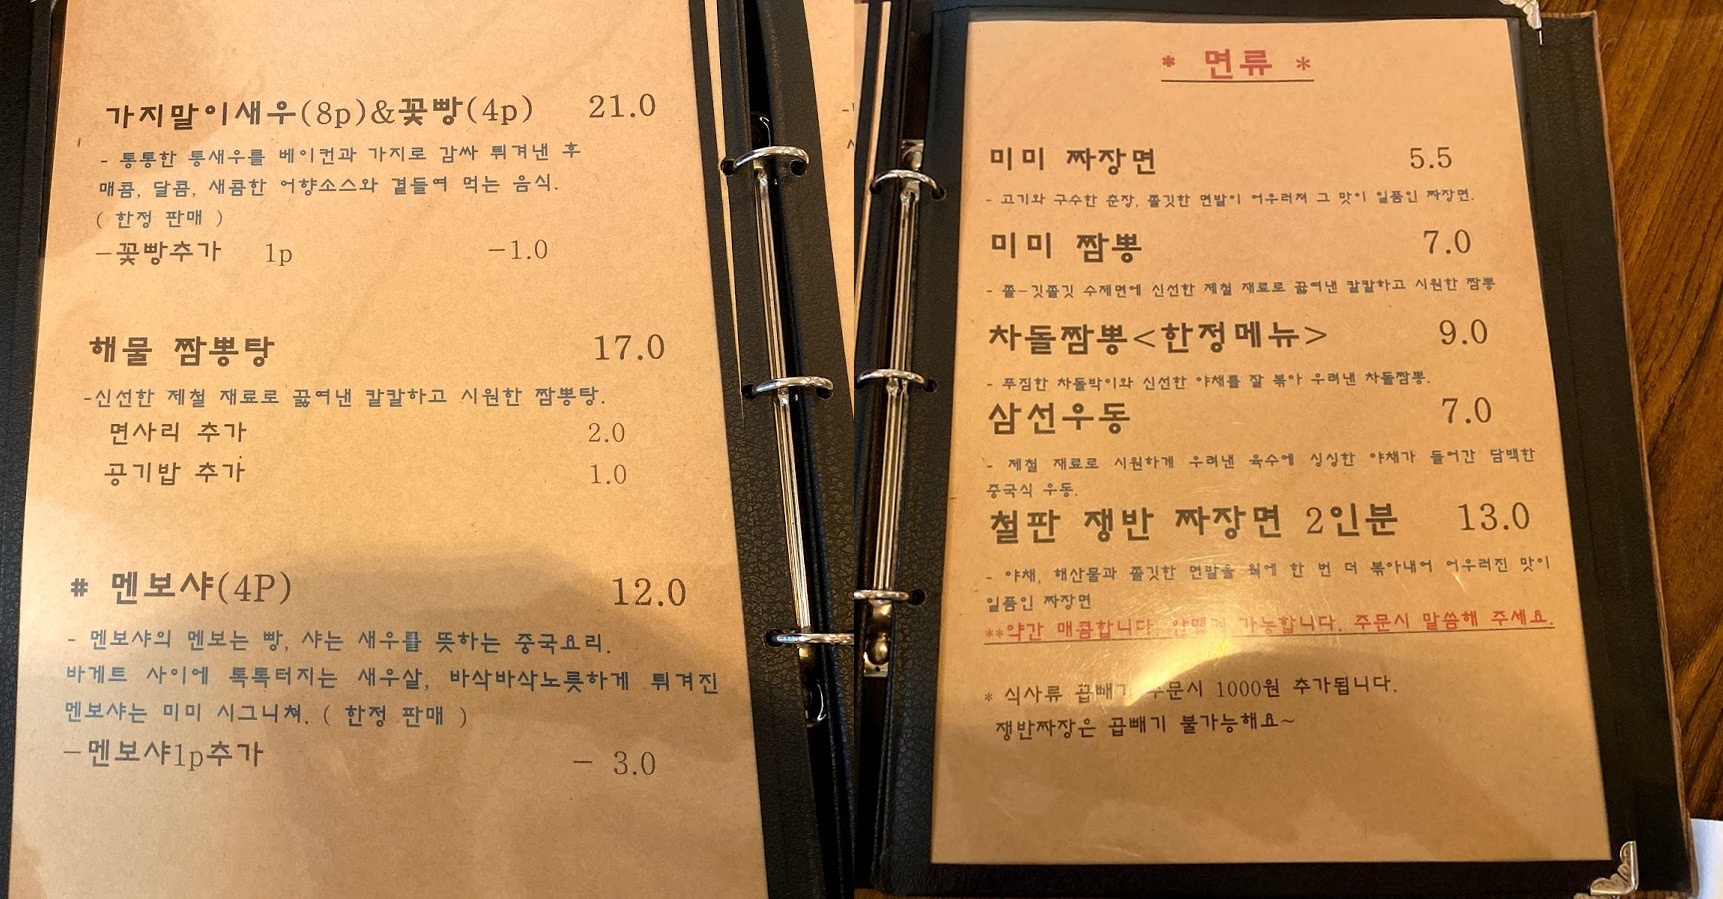 가지말이새우(8p)&꽃빵(4p) 21.0
- 통통한 통새우를 베이컨과 가지로 감싸 튀겨낸 후
매콤, 달콤, 새콤한 어향소스와 곁들여 먹는 음식.
( 한정 판매 )
-꽃빵추가 1p -1.0
해물 짬뽕탕 17.0
-신선한 제철 재료로 끓여낸 칼칼하고 시원한 짬뽕탕.
면사리 추가 2.0
공기밥 추가 1.0
# 멘보샤(4P) 12.0
- 멘보샤의 멘보는 빵, 샤는 새우를 뜻하는 중국요리.
바게트 사이에 톡톡터지는 새우살, 바삭바삭노릇하게 튀겨진
멘보샤는 미미 시그니쳐. ( 한정 판매 )
-멘보샤1p추가 - 3.0
* 면류 *
미미 짜장면 5.5
- 고기와 구수한 춘장, 쫄깃한 면발이 어우러져 그 맛이 일품인 짜장면.
미미 짬뽕 7.0
- 쫄-깃쫄깃 수제면에 신선한 제철 재료로 끓여낸 칼칼하고 시원한 짬뽕
차돌짬뽕<한정메뉴> 9.0
- 푸짐한 차돌박이와 신선한 야채를 잘 볶아 우려낸 차돌짬뽕.
삼선우동 7.0
- 제철 재료로 시원하게 우려낸 육수에 싱싱한 야채가 들어간 담백한
중국식 우동.
철판 쟁반 짜장면 2인분 13.0
- 야채, 해산물과 쫄깃한 면발을 웍에 한 번 더 볶아내어 어우러진 맛이
일품인 짜장면
**약간 매콤합니다. 가능합니다. 주문시 말씀해 주세요.
* 식사류 곱빼기 주문시 1000원 추가됩니다.
쟁반짜장은 곱빼기 불가능해요~